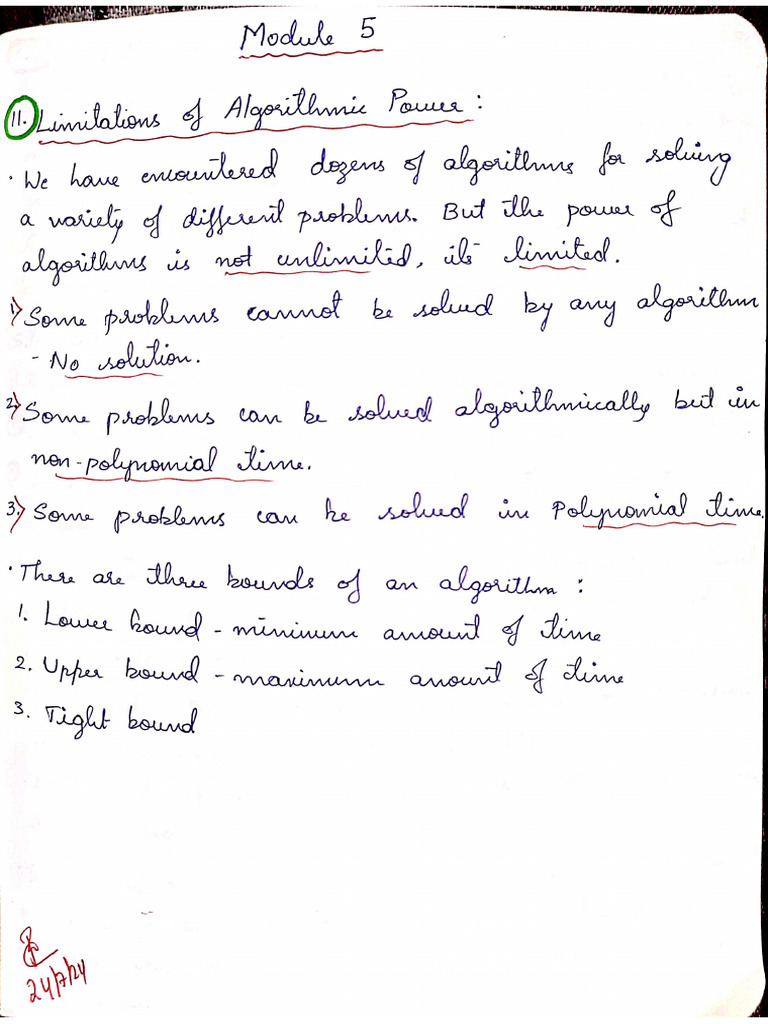 Module 5
11. Limitations of Algorithmic Power :
· We have encountered dozens of algorithms for solving
a variety of different problems. But the power of
algorithms is not unlimited, its limited.
1) Some problems cannot be solved by any algorithm
- No solution.
2) Some problems can be solved algorithmically but in
non-polynomial time.
3.) Some problems can be solved in Polynomial time.
· There are three bounds of an algorithm :
1. Lower bound - minimum amount of time
2. Upper bound - maximum amount of time
3. Tight bound
24/7/24